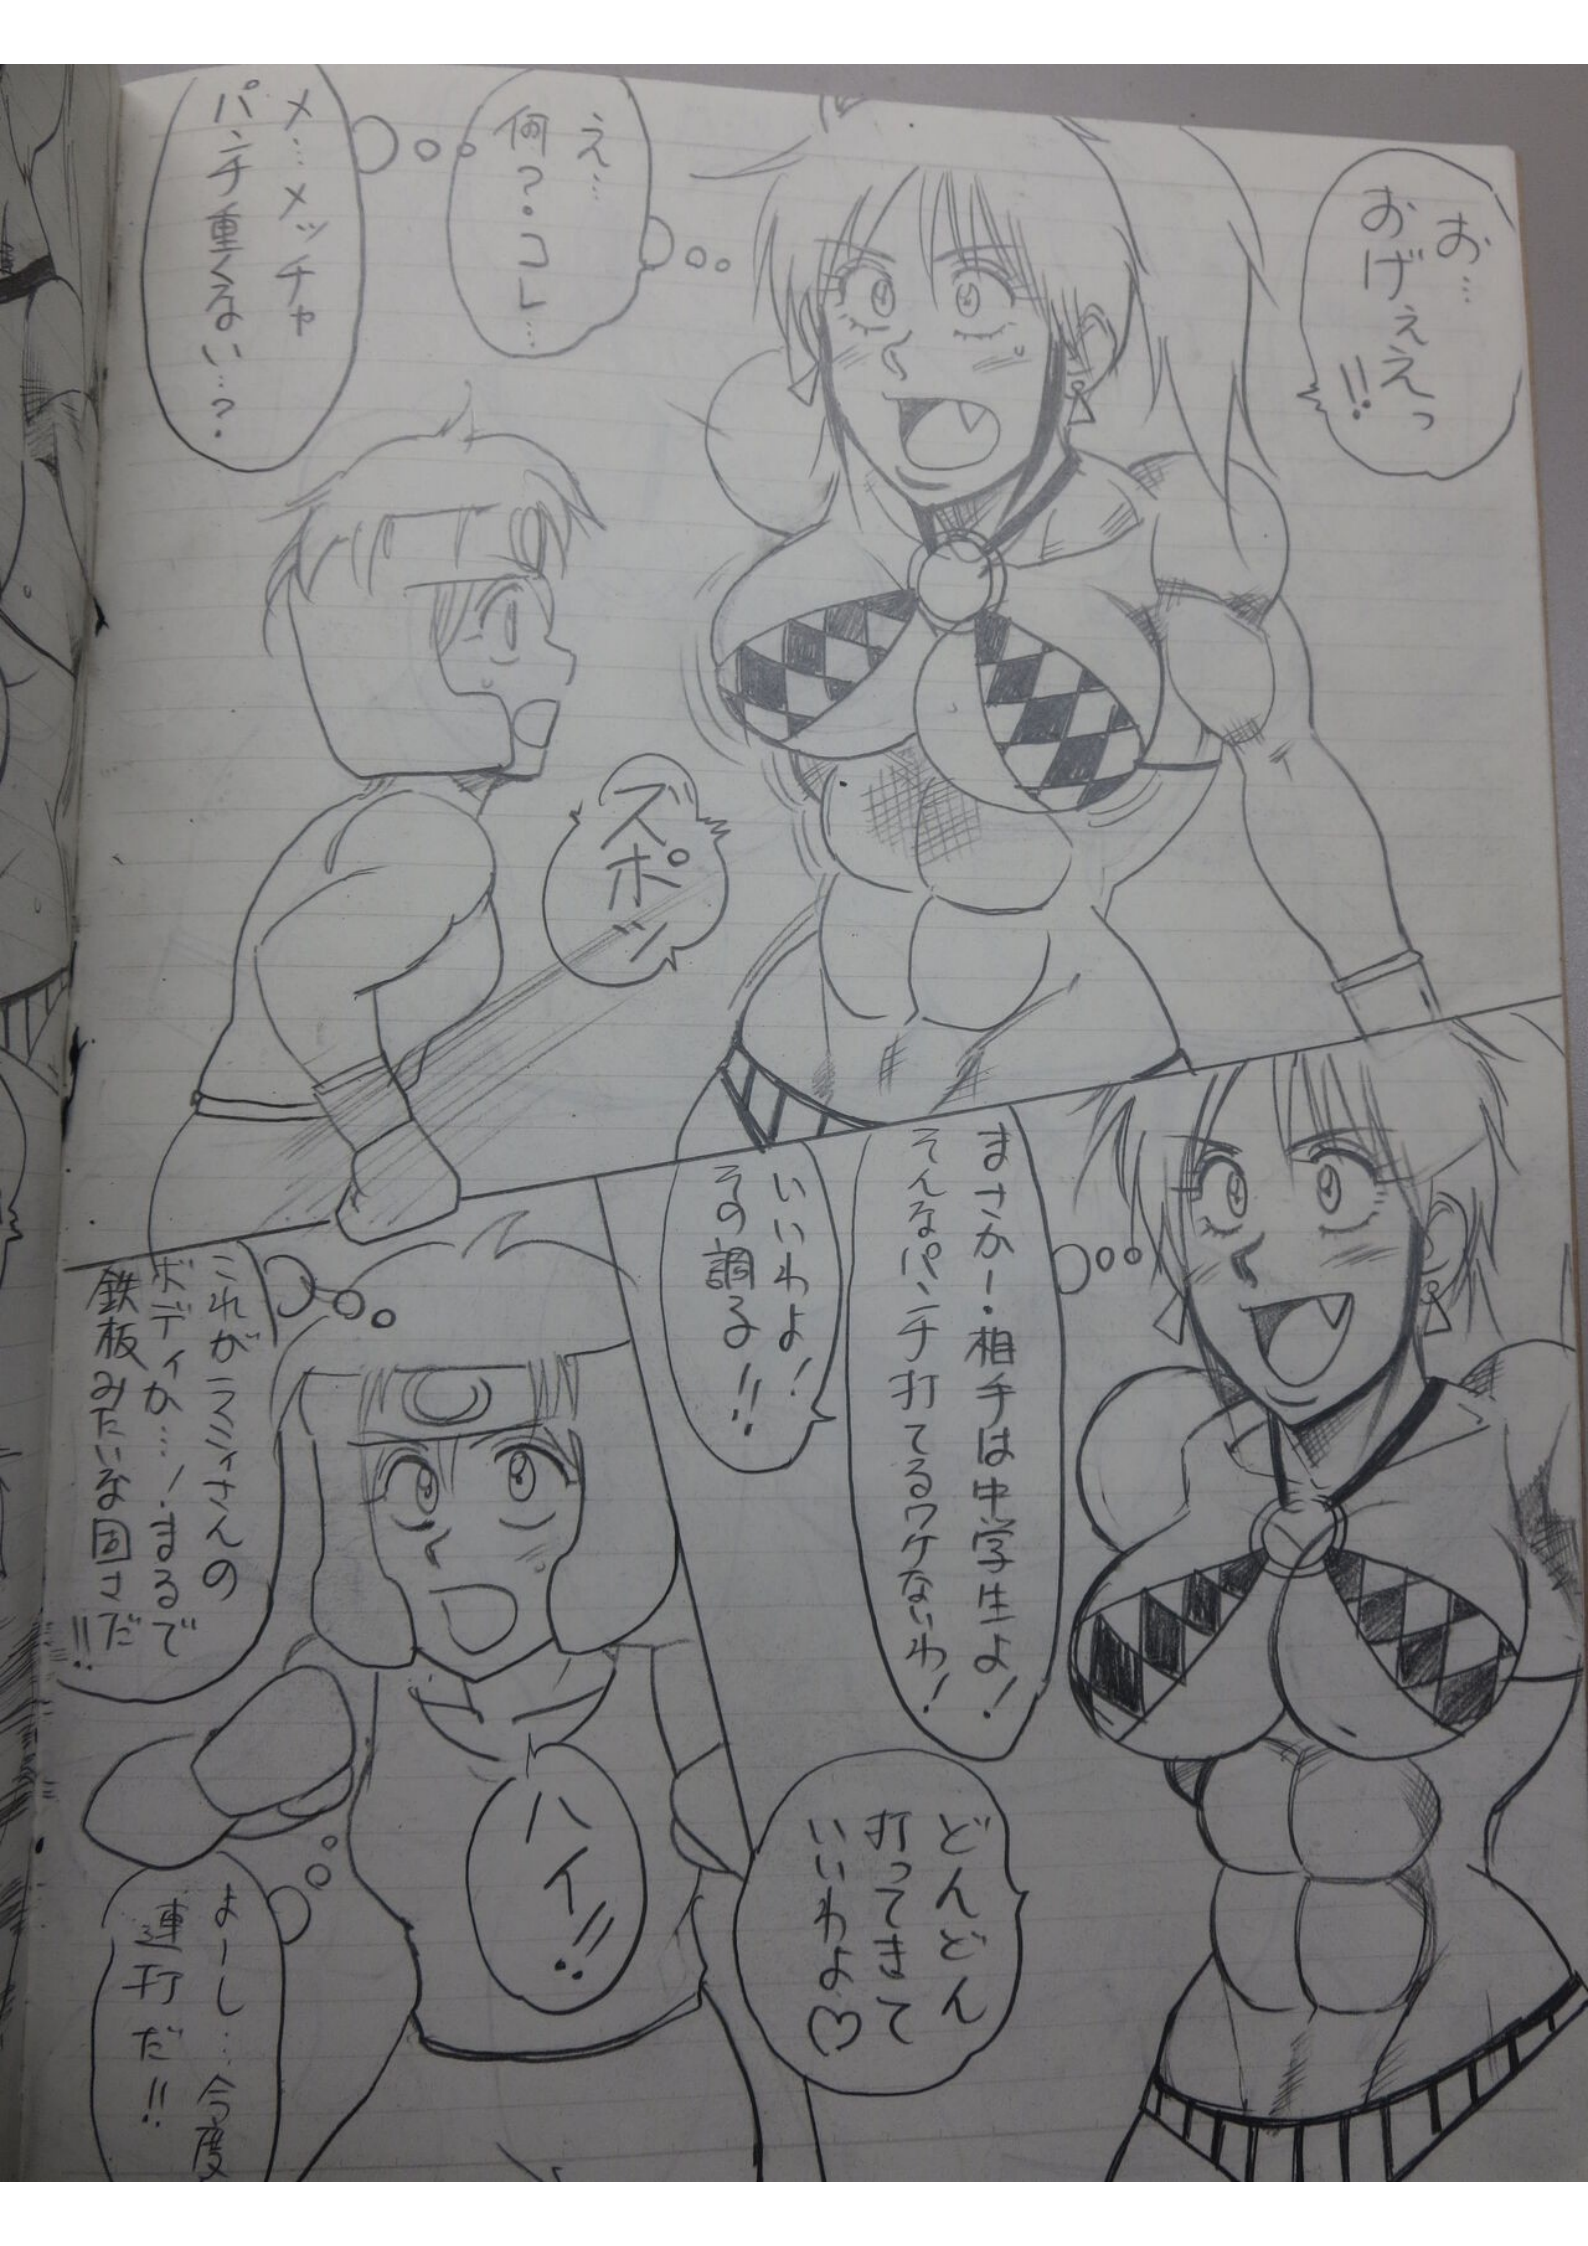 お…
おげぇえっ
!!
え…
何?・コレ…
メ…メッチャ
パンチ重くない…?
ズポッ
まさかー・相手は中学生よ!
そんなパンチ打てるワケないわ!
いいわよ!
その調子!!
どんどん
打ってきて
いいわよ♡
これがラミィさんの
ボディか…!まるで
鉄板みたいな固さだ
!!
ハイ!!
よーし…今度
連打だ!!